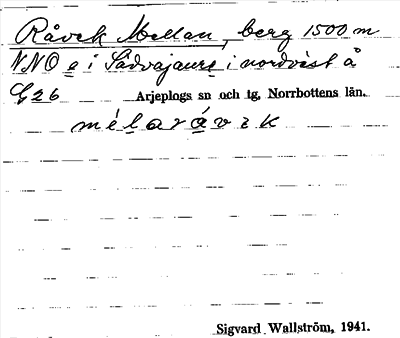 Råvek Mellan, berg 1500 m
NNO e i Sädvajaure i nordväst å
G 26 Arjeplogs sn och tg, Norrbottens län.
mélarávek
Sigvard Wallström, 1941.